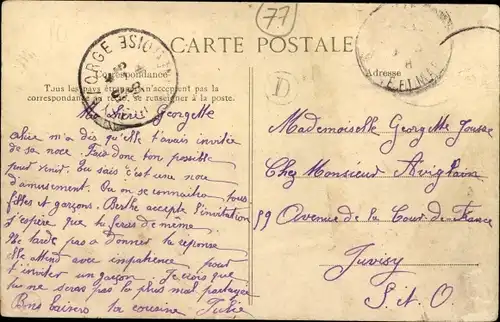 77
CARTE POSTALE
Correspondance
Tous les pays étrangers n'acceptent pas la
correspondance au recto, se renseigner à la poste.
Adresse
D
Ma Chérie Georgette
Alice m'a dis qu'elle t'avais invitée
de sa noce. Fais donc ton possible
pour venir. Tu sais c'est une noce
d'amusement. On se connaitra tous
filles et garçons. Berthe accepte l'invitation
J'espère que tu feras de même.
Ne tarde pas a donner ta réponse
Elle attend avec impatience pour
t'inviter un garçon. Je crois que
tu ne seras pas la plus mal partagée
Bons baisers ta cousine Julie
Mademoiselle Georgette Jousse
Chez Monsieur
59 Avenue de la Cour de France
Juvisy
S. et O.